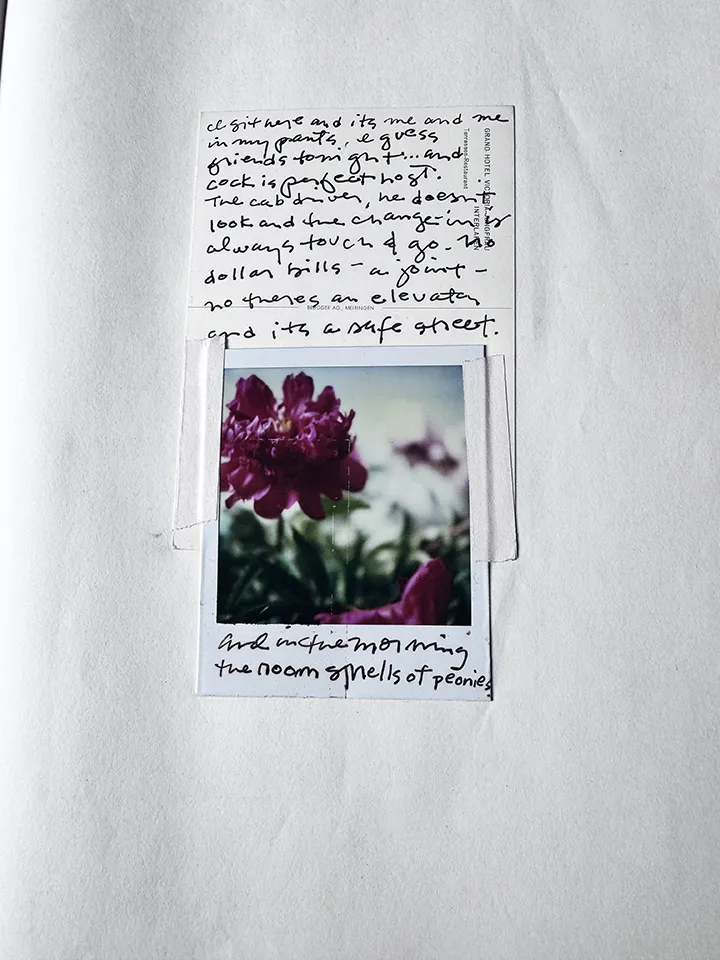 I sit here and its me and me
in my pants, I guess
friends tonight... and
cock is perfect host.
The cab driver, he doesn't
look and the change- in is
always touch & go. No
dollar bills – a joint –
no theres an elevator
and its a safe street.
GRAND HOTEL VICTORIA-JUNGFRAU
INTERLAKEN
Terrassen-Restaurant
BRÜGGER AG., MEIRINGEN
and in the morning
the room smells of peonies